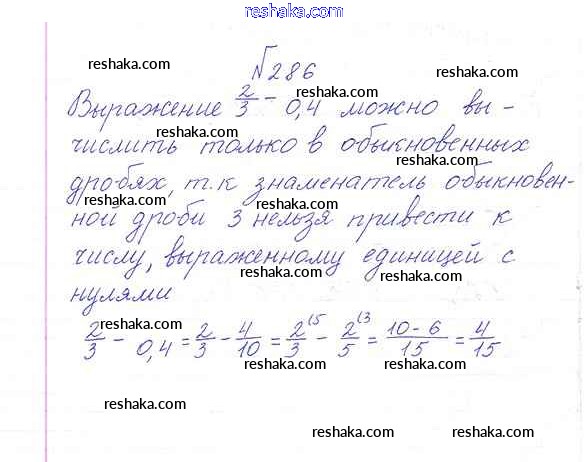 reshaka.com
№286
reshaka.com reshaka.com
Выражение 2/3 - 0,4 можно вы-
reshaka.com reshaka.com
числить только в обыкновенных
reshaka.com
дробях, т.к знаменатель обыкновен-
reshaka.com reshaka.com
ной дроби 3 нельзя привести к
reshaka.com reshaka.com
числу, выраженному единицей с
reshaka.com
нулями
reshaka.com reshaka.com
2/3 - 0,4 = 2/3 - 4/10 = 2/3 (5 - 2/5 (3 = 10-6/15 = 4/15
reshaka.com reshaka.com
reshaka.com
reshaka.com reshaka.com
reshaka.com